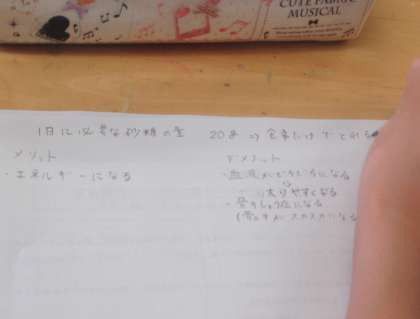 CUTE FABRIC
MUSICAL
1日に必要な砂糖の量 20g ⇒ 食事だけでとれる
メリット
・エネルギーになる
デメリット
・血液がドロドロになる
太りやすくなる
・骨のしょう症になる
(骨がスカスカになる